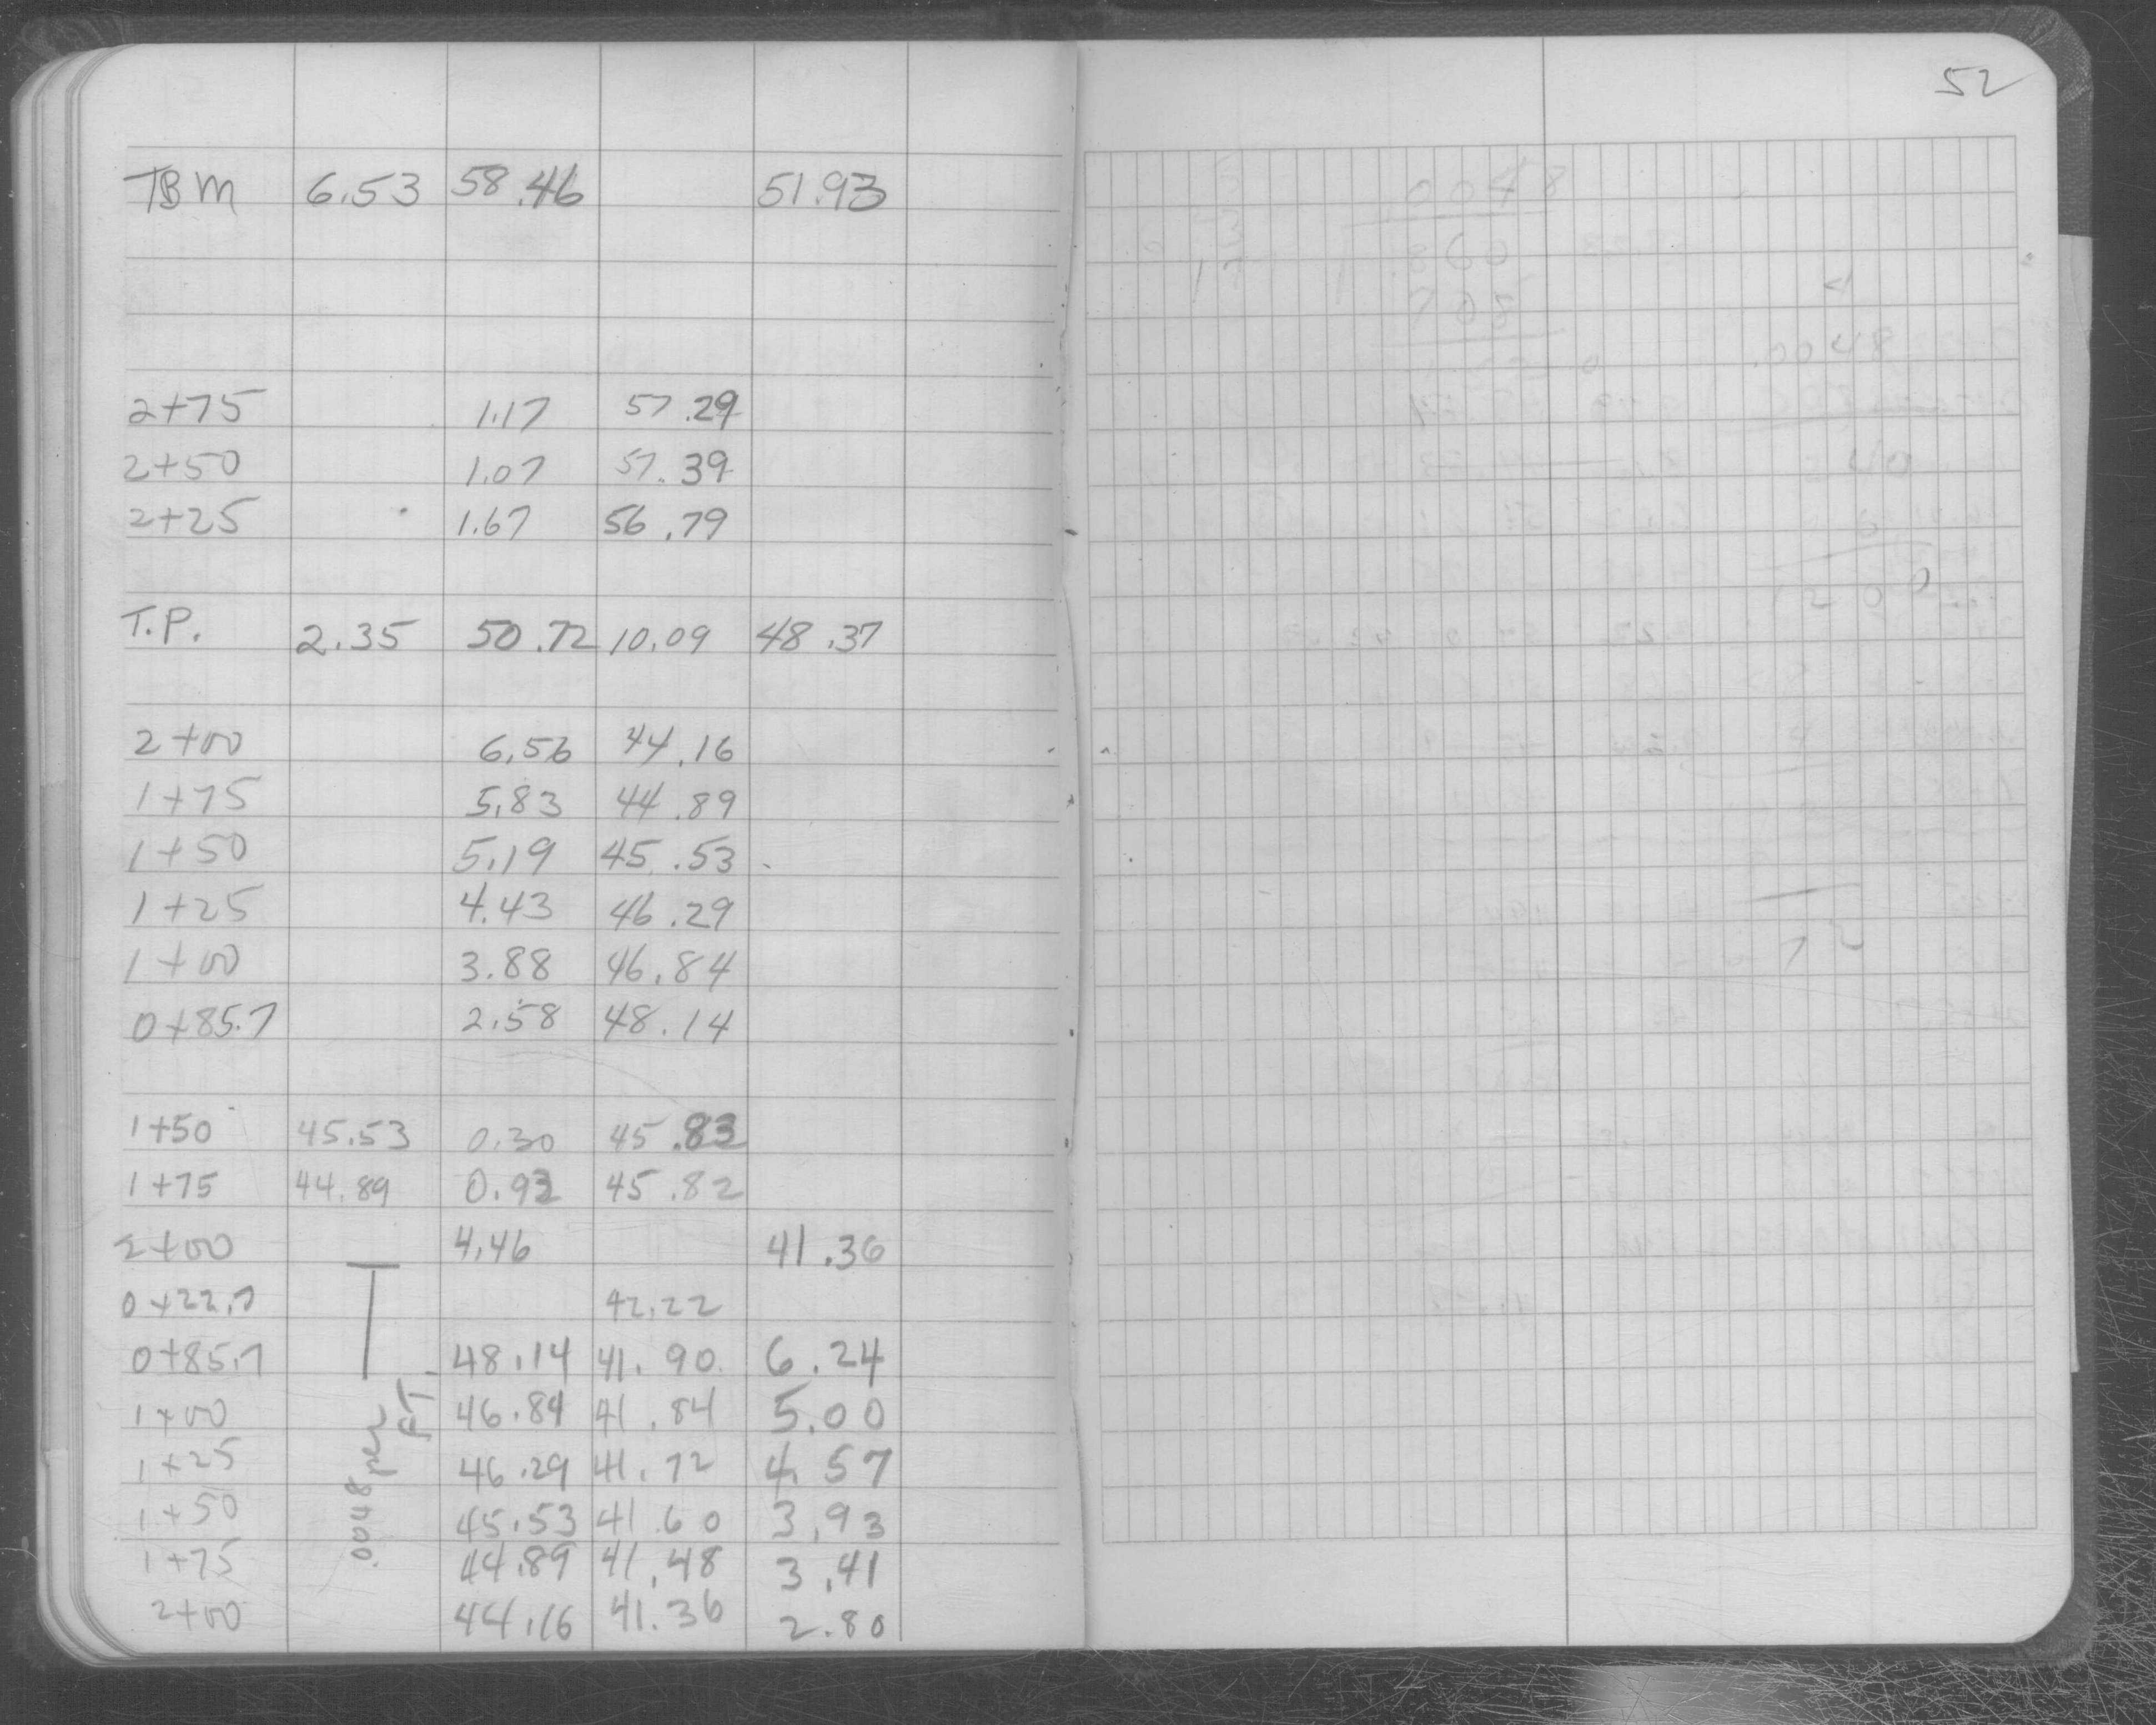 52
TBM 6.53 58.46 51.93
2+75 1.17 57.29
2+50 1.07 57.39
2+25 1.67 56.79
T.P. 2.35 50.72 10.09 48.37
2+00 6.56 44.16
1+75 5.83 44.89
1+50 5.19 45.53
1+25 4.43 46.29
1+00 3.88 46.84
0+85.7 2.58 48.14
1+50 45.53 0.30 45.83
1+75 44.89 0.93 45.82
2+00 4.46 41.36
0+22.7 42.22
0+85.7 48.14 41.90 6.24
1+00 46.84 41.84 5.00
1+25 46.29 41.72 4.57
1+50 45.53 41.60 3.93
1+75 44.89 41.48 3.41
2+00 44.16 41.36 2.80
.0048 per
FT.